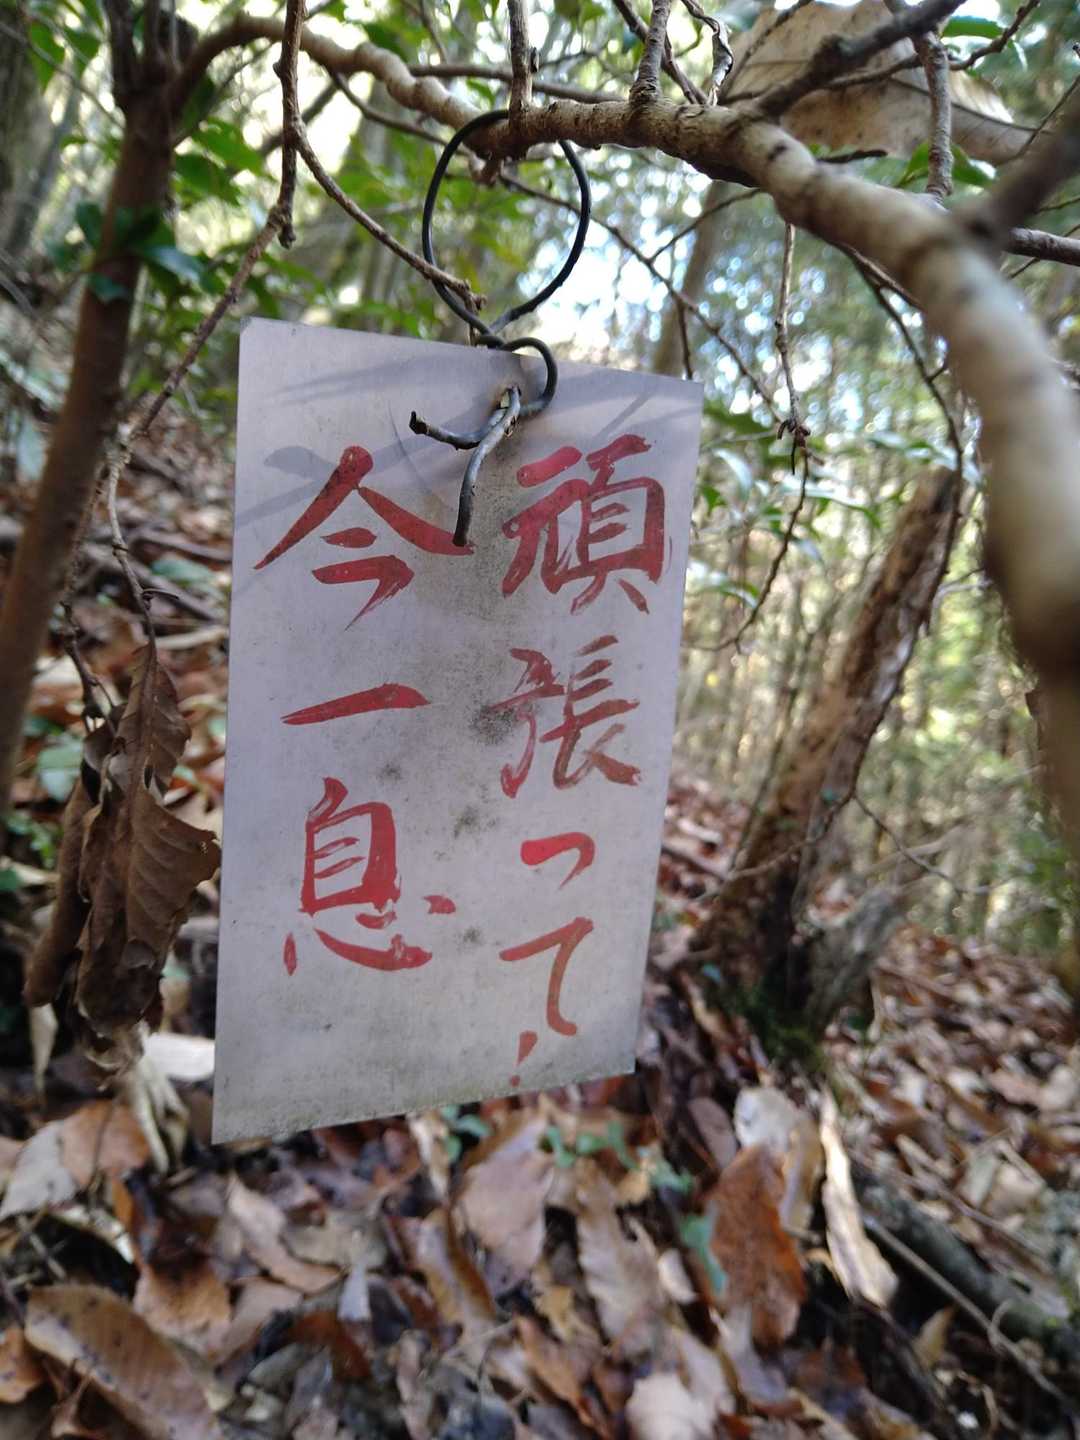 頑張って!
今一息